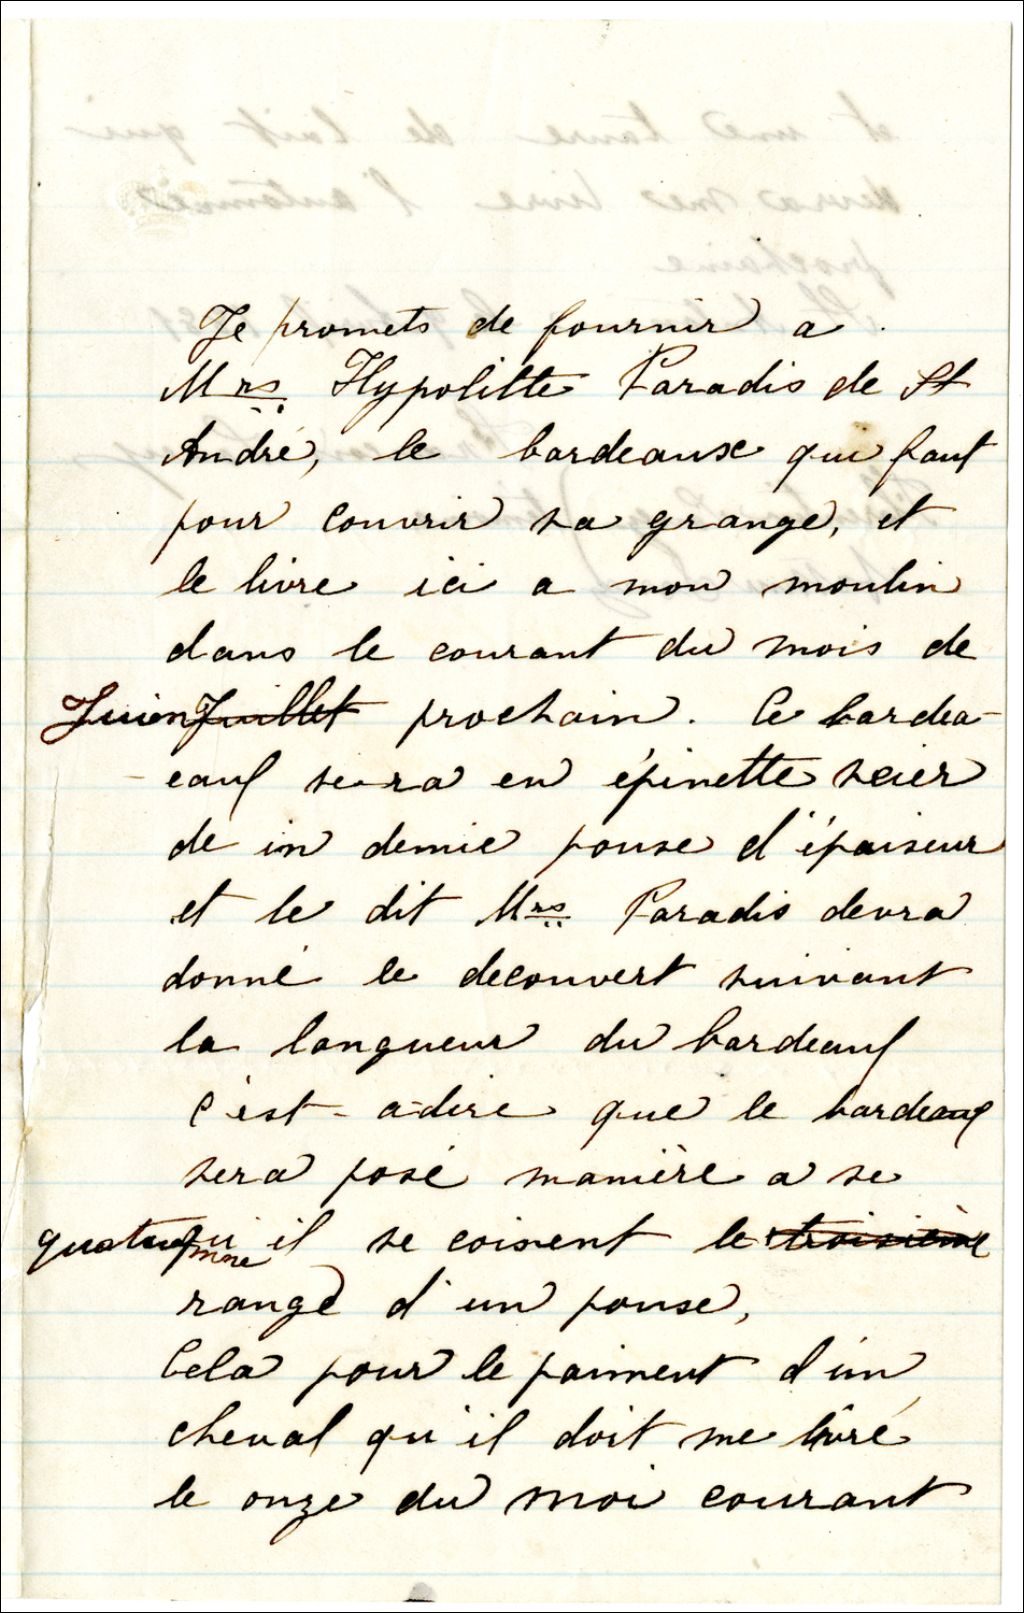 Je promets de fournir a
Mrs Hypolitte Paradis de St
André, le bardeaux qui faut
pour couvrir sa grange, et
le livre ici a mon moulin
dans le courant du mois de
Juien Juillet prochain. Ce bardea-
eaux sera en épinette scier
de un demie pouse d'épaiseur
et le dit Mrs Paradis devra
donné le decouvert suivant
la longueur du bardeaux
c'est-a-dire que le bardeaux
sera posé manière a se
quatrimme qu'il se coisent le troisième
range d'un pouse,
Cela pour le paiment d'un
cheval qu'il doit me livré
le onze du moi courant